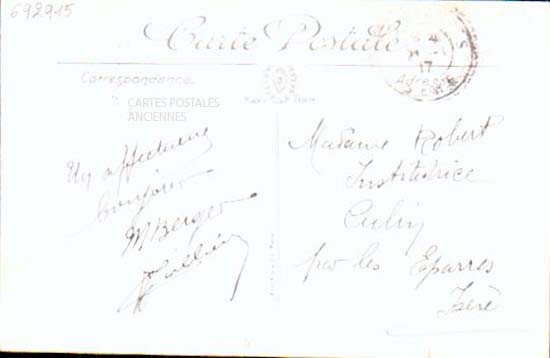 692915
Carte Postale
Correspondance
Adresse
CARTES POSTALES
ANCIENNES
17
Un affectueux
bonjour
M Berger
Madame Robert
Institutrice
Culin
par les Eparres
Isère